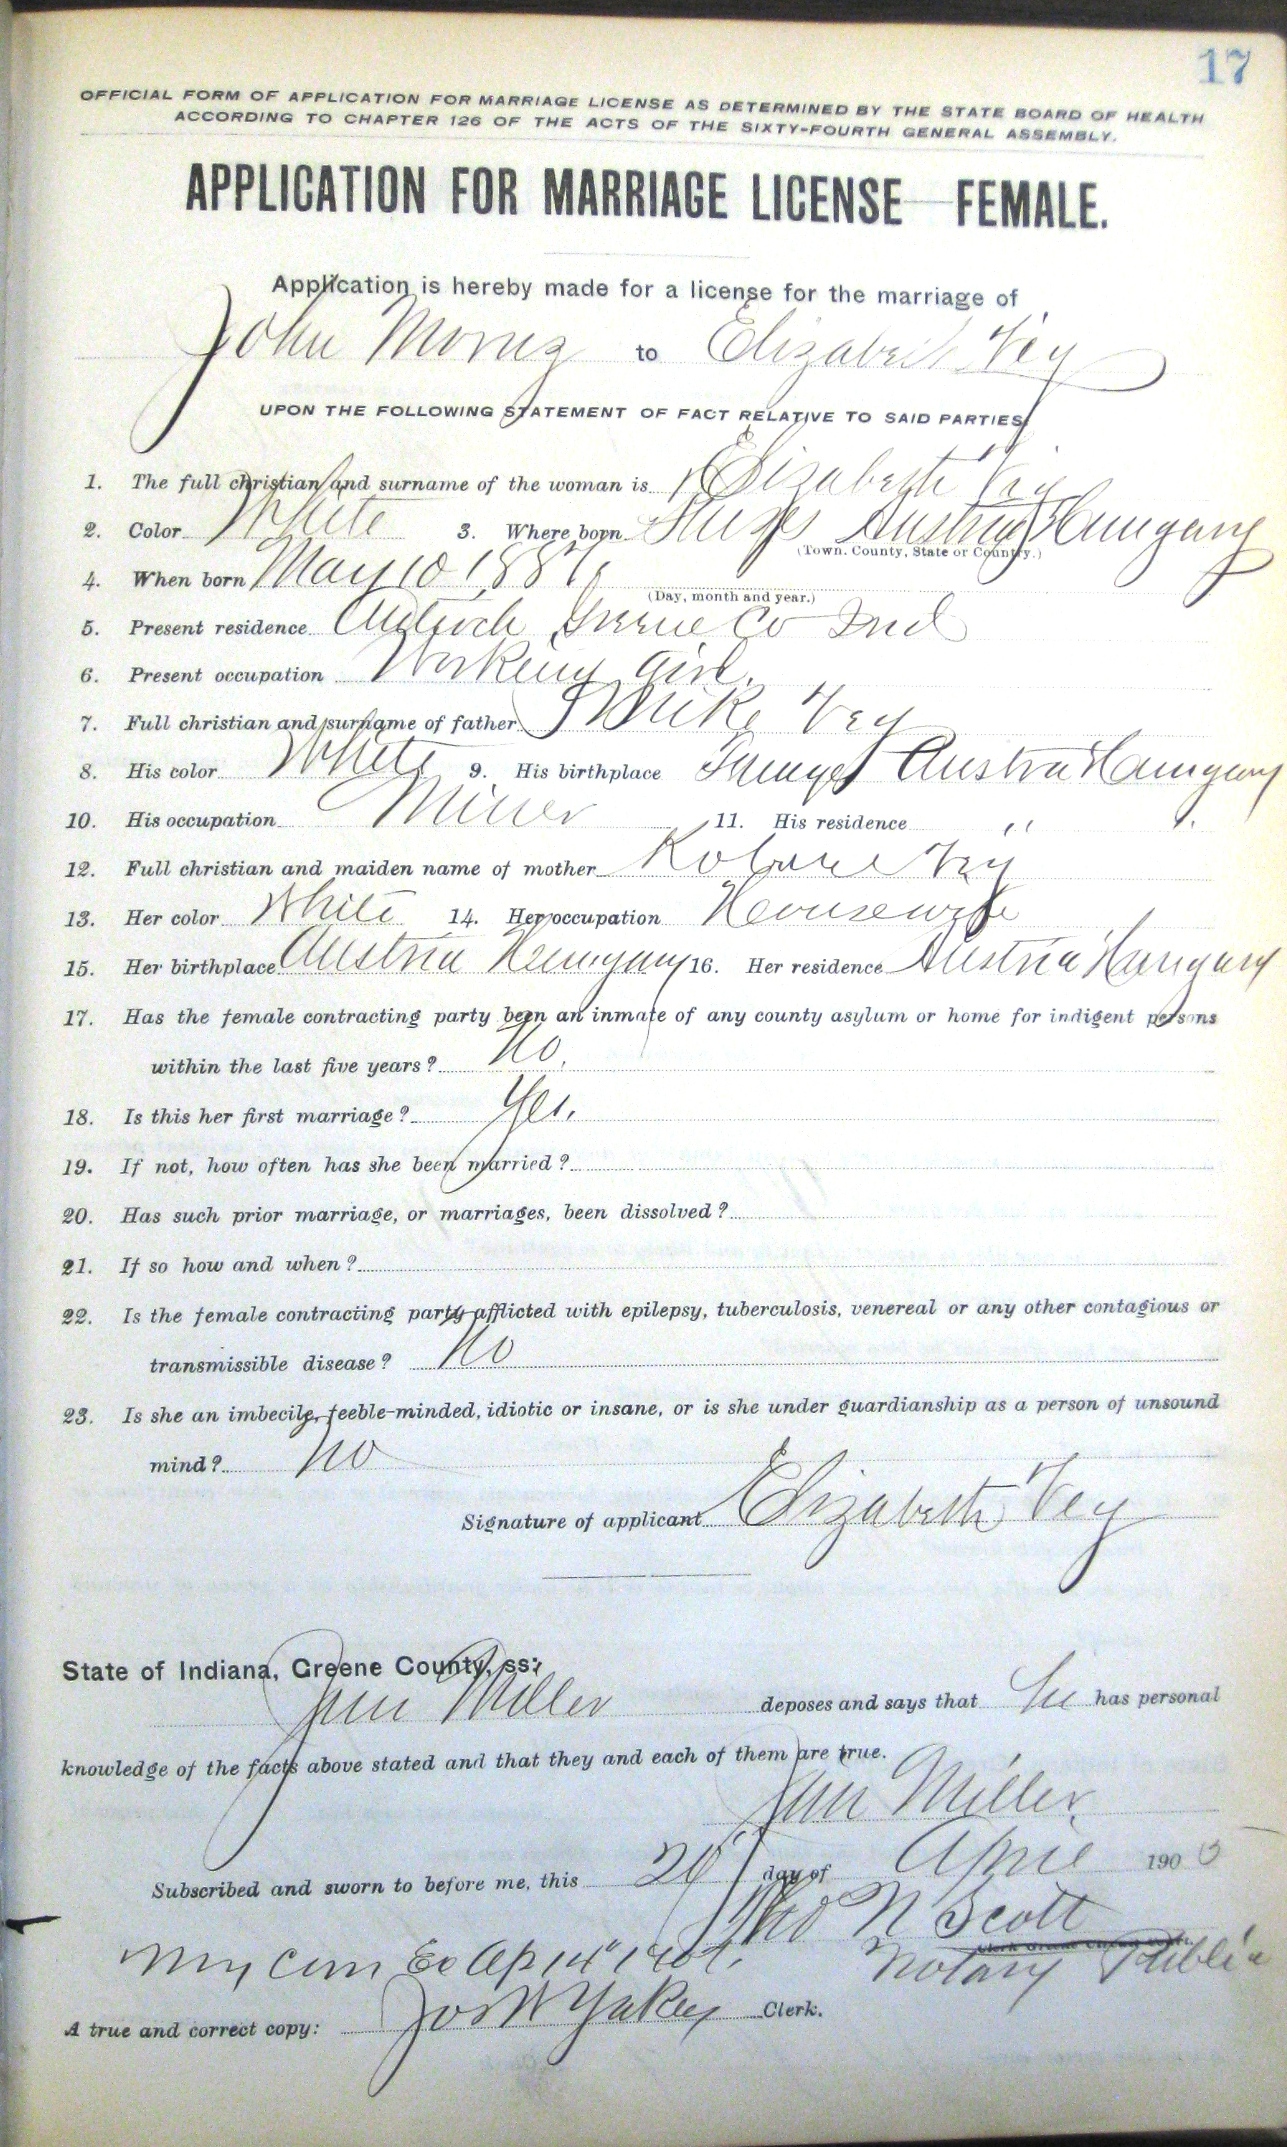 17
OFFICIAL FORM OF APPLICATION FOR MARRIAGE LICENSE AS DETERMINED BY THE STATE BOARD OF HEALTH
ACCORDING TO CHAPTER 126 OF THE ACTS OF THE SIXTY-FOURTH GENERAL ASSEMBLY.
APPLICATION FOR MARRIAGE LICENSE—FEMALE.
Application is hereby made for a license for the marriage of
John to Elizabeth Vey
UPON THE FOLLOWING STATEMENT OF FACT RELATIVE TO SAID PARTIES:
1. The full christian and surname of the woman is Elizabeth Vey
2. Color White 3. Where born Austria Hungary
(Town. County, State or Country.)
4. When born May 10 188
(Day, month and year.)
5. Present residence Antioch Greene Co Ind
6. Present occupation Working Girl.
7. Full christian and surname of father Mike Vey
8. His color White 9. His birthplace Austria Hungary
10. His occupation Miner 11. His residence " "
12. Full christian and maiden name of mother Vey
13. Her color White 14. Her occupation Housewife
15. Her birthplace Austria Hungary 16. Her residence Austria Hungary
17. Has the female contracting party been an inmate of any county asylum or home for indigent persons
within the last five years? No.
18. Is this her first marriage? Yes.
19. If not, how often has she been married?
20. Has such prior marriage, or marriages, been dissolved?
21. If so how and when?
22. Is the female contracting party afflicted with epilepsy, tuberculosis, venereal or any other contagious or
transmissible disease? No
23. Is she an imbecile, feeble-minded, idiotic or insane, or is she under guardianship as a person of unsound
mind? No
Signature of applicant Elizabeth Vey
State of Indiana, Greene County, ss:
Miller deposes and says that he has personal
knowledge of the facts above stated and that they and each of them are true.
Miller
Subscribed and sworn to before me, this day of April 190
N Scott
Clerk Greene Circuit Court.
My Com Ex Ap 14" Notary Public
A true and correct copy: Jos W Yakey Clerk.